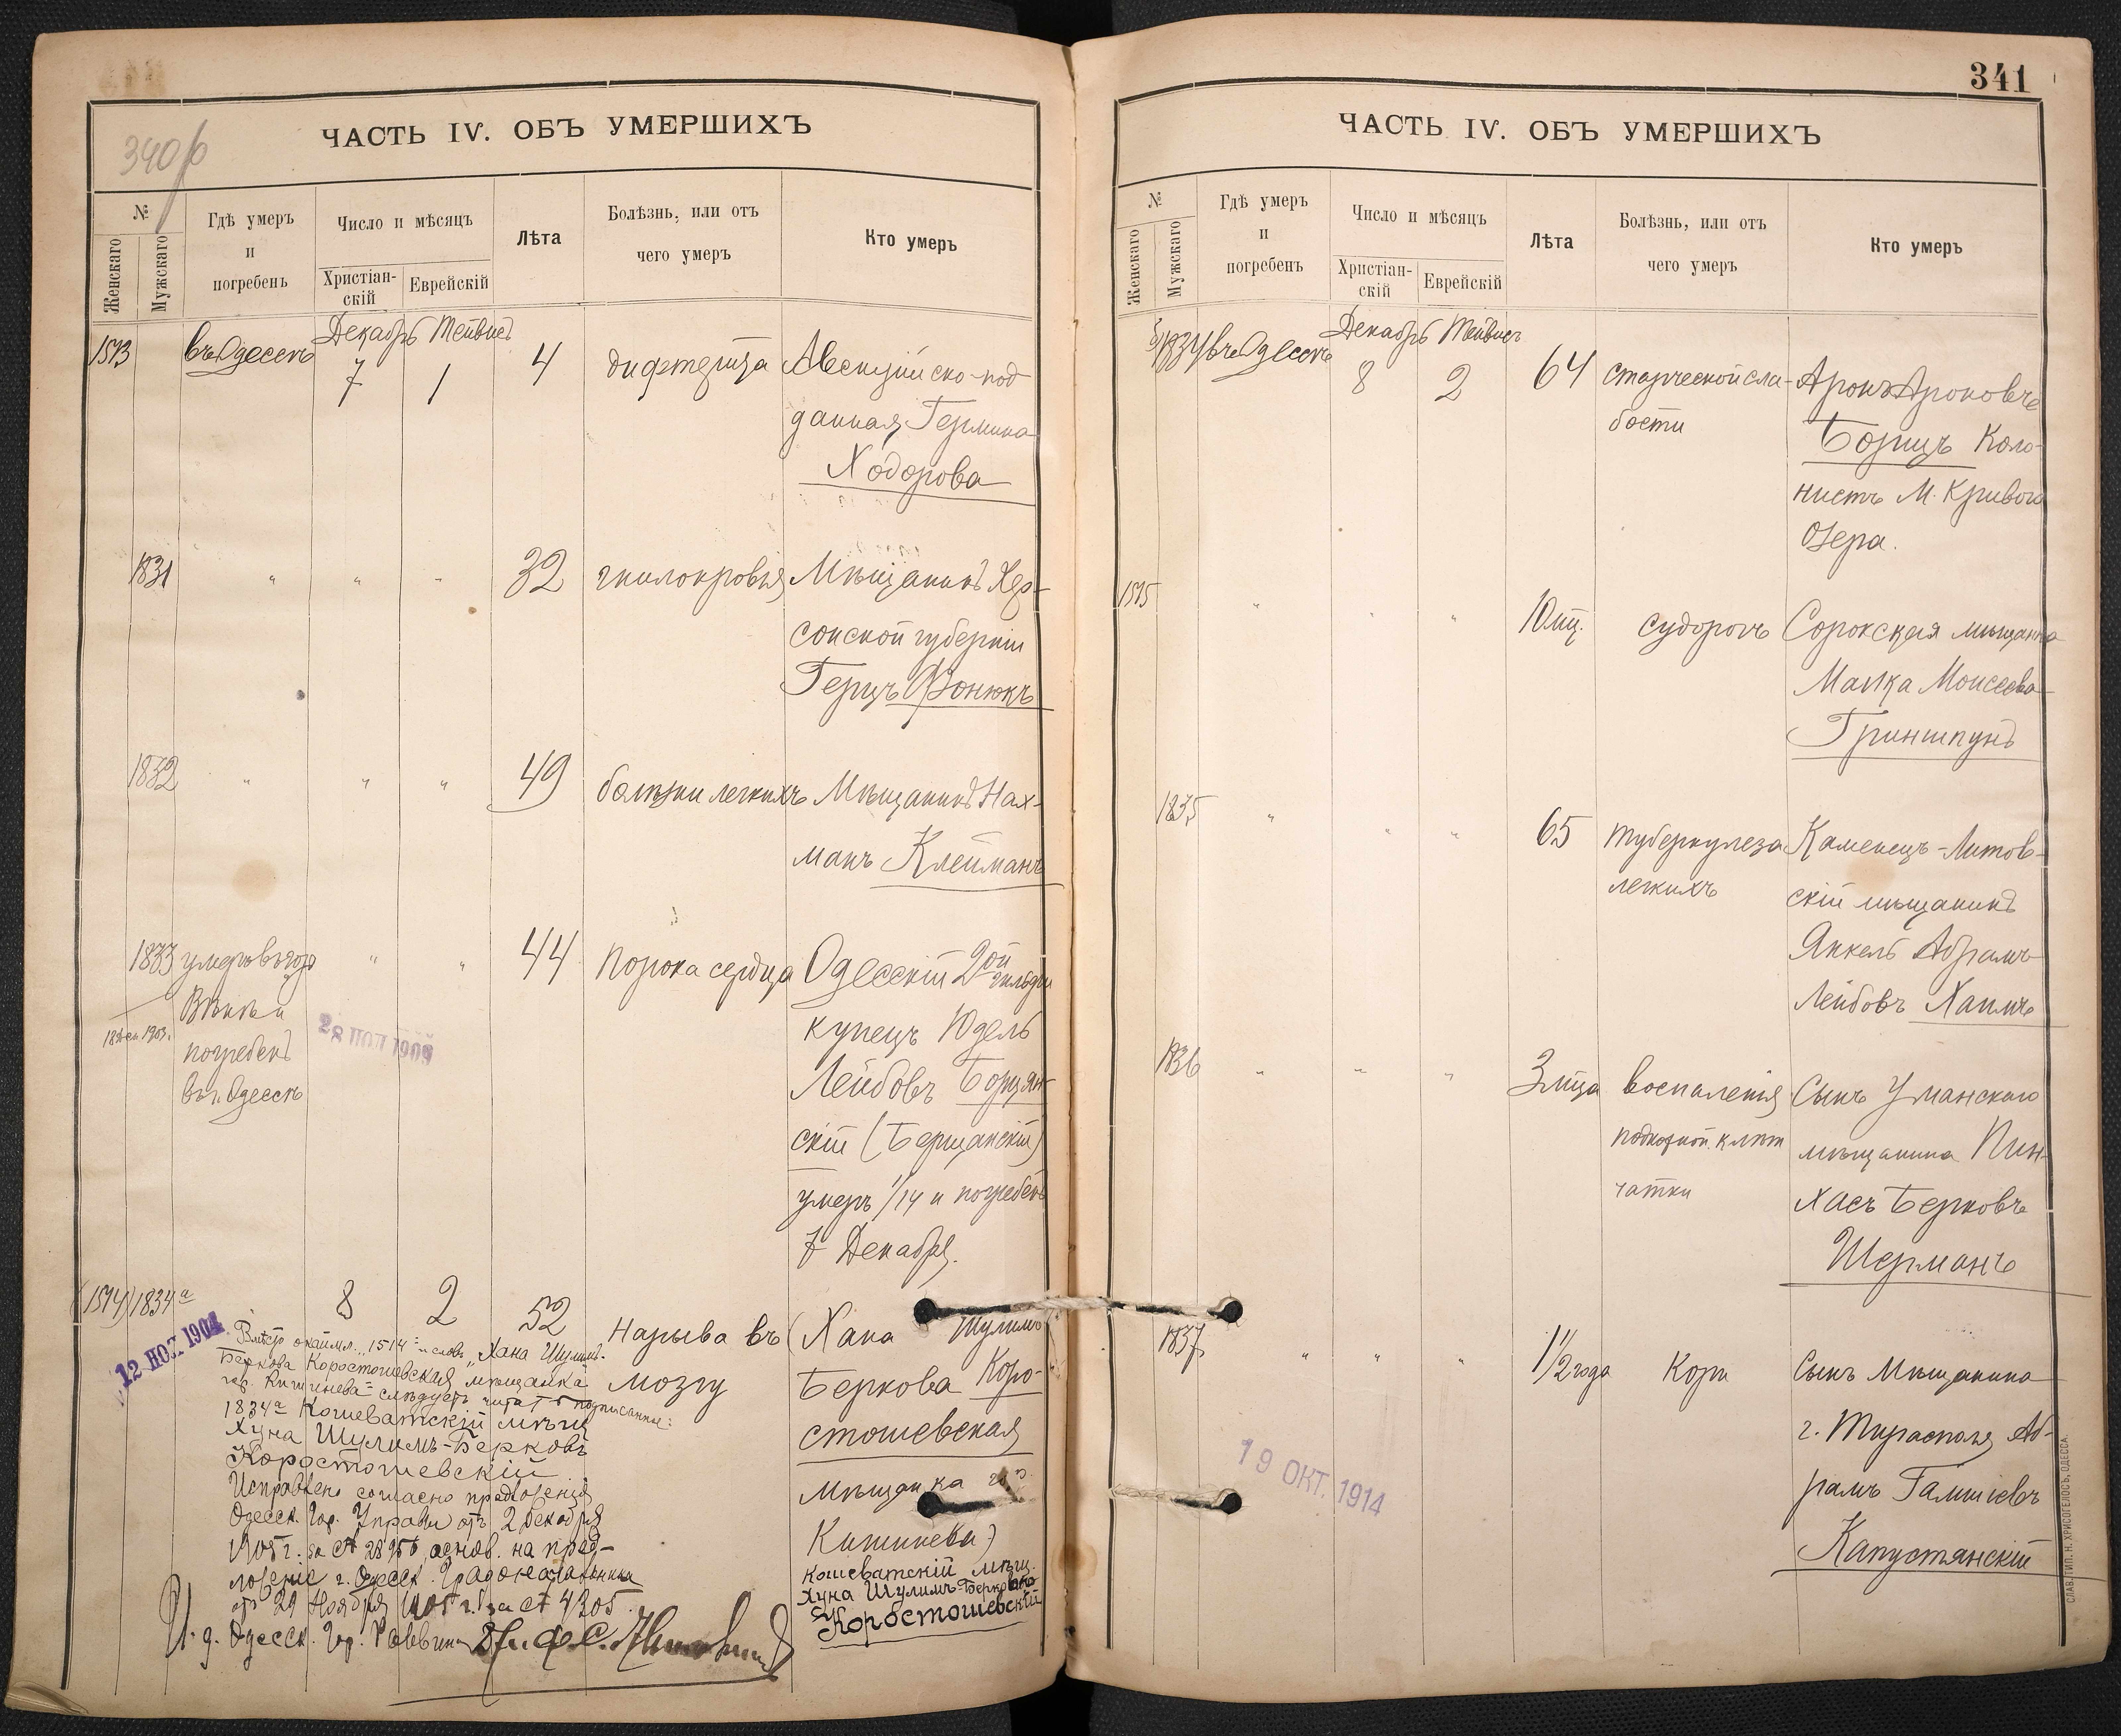 340 об
ЧАСТЬ IV. ОБЪ УМЕРШИХЪ
№
Женскаго
Мужскаго
Гдѣ умеръ
и
погребенъ
Число и мѣсяцъ
Христіан-
скій
Еврейскій
Лѣта
Болѣзнь, или отъ
чего умеръ
Кто умеръ
1513 въ Одессѣ Декабрь 7 Тейвисъ 1 4 дифтерита
данная Гермина
Ходорова
1831 " " " 32 гнилокровія Мѣщанинъ Хер-
сонской губерніи
Герцъ Фонюкъ
1832 " " " 49 болѣзни легкихъ Мѣщанинъ Нах-
манъ Клейманъ
1833 умеръ въ гор. " " 44 Порока сердца Одесскій 2ой гильдіи
Вѣнѣ и
погребенъ
въ г. Одессѣ
28 НОЯ 1903
купецъ Юдель
Лейбовъ Борщан-
скій (Берщанскій)
умеръ 1/14 и погребенъ
7 Декабря.
(1514) 1834а 8 2 52 Нарыва въ
мозгу
(Хана Шулимъ
Беркова Коро-
стошевская
мѣщанка гор.
Кишинева)
Кошеватскій мѣщ.
Хуна Шулимъ-Берковъ
Коростошевскій
12 НОЯ 1904
Вмѣсто окаймл. "1514" и словъ "Хана Шулимъ-
Беркова Коростошевская мѣщанка
гор. Кишинева" слѣдуетъ читать подписанные:
1834а Кошеватскій мѣщ.
Хуна Шулимъ-Берковъ
Коростошевскій
Исправлено согласно предложенія
Одесск. Гор. Управы отъ 2 Декабря
1905 г. за № 28950, основ. на пред-
ложеніе г. Одесск. Градоначальника
отъ 29 Ноября 1905 г. за № 4205
И. д. Одесск. Гор. Раввина
341
ЧАСТЬ IV. ОБЪ УМЕРШИХЪ
№
Женскаго
Мужскаго
Гдѣ умеръ
и
погребенъ
Число и мѣсяцъ
Христіан-
скій
Еврейскій
Лѣта
Болѣзнь, или отъ
чего умеръ
Кто умеръ
1834 въ Одессѣ Декабрь 8 Тейвисъ 2 64 старческой сла-
бости
Аронъ Ароновъ
Борицъ Коло-
нистъ М. Кривого
Озера.
1515 " " " 10 мц. судорогъ Сорокская мѣщанка
Малка Моисеева
Гриншпунъ
1835 " " " 65 туберкулеза
легкихъ
Каменецъ-Литов-
скій мѣщанинъ
Янкель Абрамъ
Лейбовъ Хаимъ
1836 " " " 3 мѣца воспаленія
подкожной клѣт
чатки
Сынъ Уманскаго
мѣщанина Пин-
хасъ Берковъ
Шерманъ
1837 " " " 1 1/2 года Кори Сынъ Мѣщанина
г. Тирасполя Аб-
рамъ
Капустянскій
19 ОКТ. 1914
СЛАВ. ТИП. Н. ХРИСОГЕЛОСЪ, ОДЕССА.